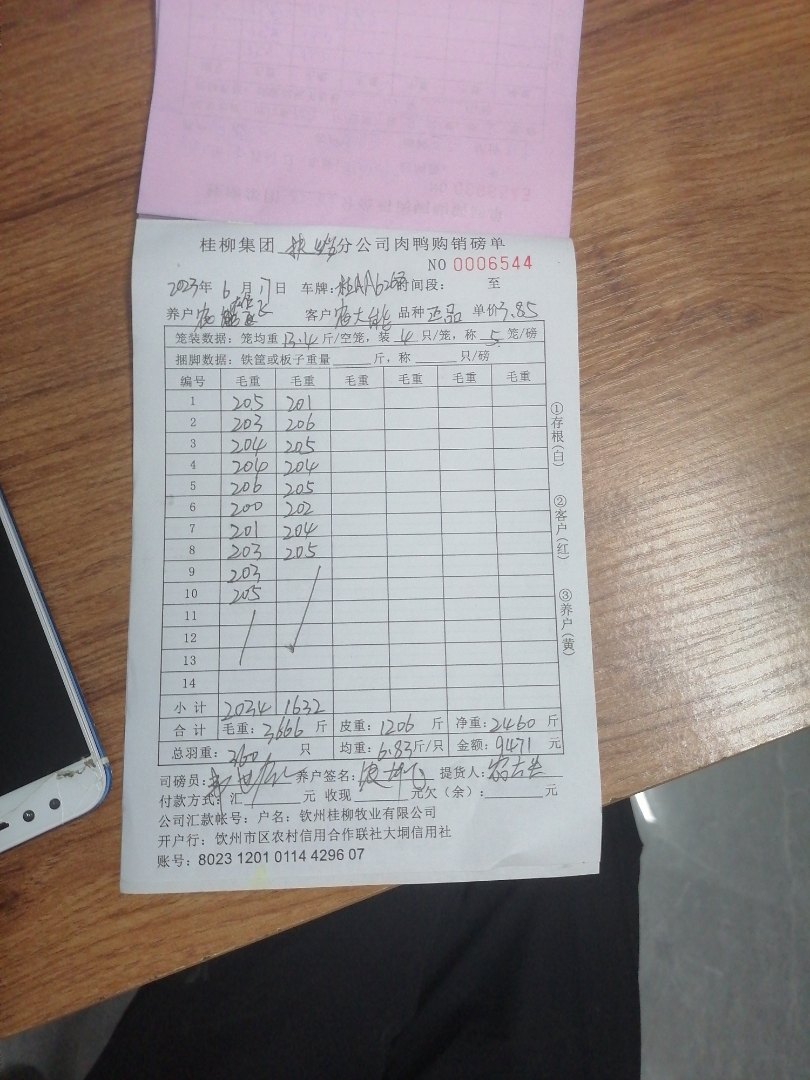 NO 0006543
桂柳集团 扶绥分公司肉鸭购销磅单
NO 0006544
2023年 6 月 17日 车牌: 时间段: 至
养户 客户 农大能 品种 正品 单价3.85
笼装数据：笼均重 13.4 斤/空笼，装 4 只/笼，称 5 笼/磅
捆脚数据：铁筐或板子重量 斤，称 只/磅
编号 毛重 毛重 毛重 毛重 毛重 毛重
1 205 201
2 203 206
3 204 205
4 204 204
5 206 205
6 200 202
7 201 204
8 203 205
9 203
10 205
11
12
13
14
小计 2034 1632
合计 毛重: 3666 斤 皮重: 1206 斤 净重: 2460 斤
总羽重: 360 只 均重: 6.83斤/只 金额: 9471 元
司磅员: 养户签名: 提货人:
付款方式: 汇 元 收现 元欠（余）: 元
公司汇款帐号：户名：钦州桂柳牧业有限公司
开户行：钦州市区农村信用合作联社大垌信用社
账号：8023 1201 0114 4296 07
①存根(白)
②客户(红)
③养户(黄)